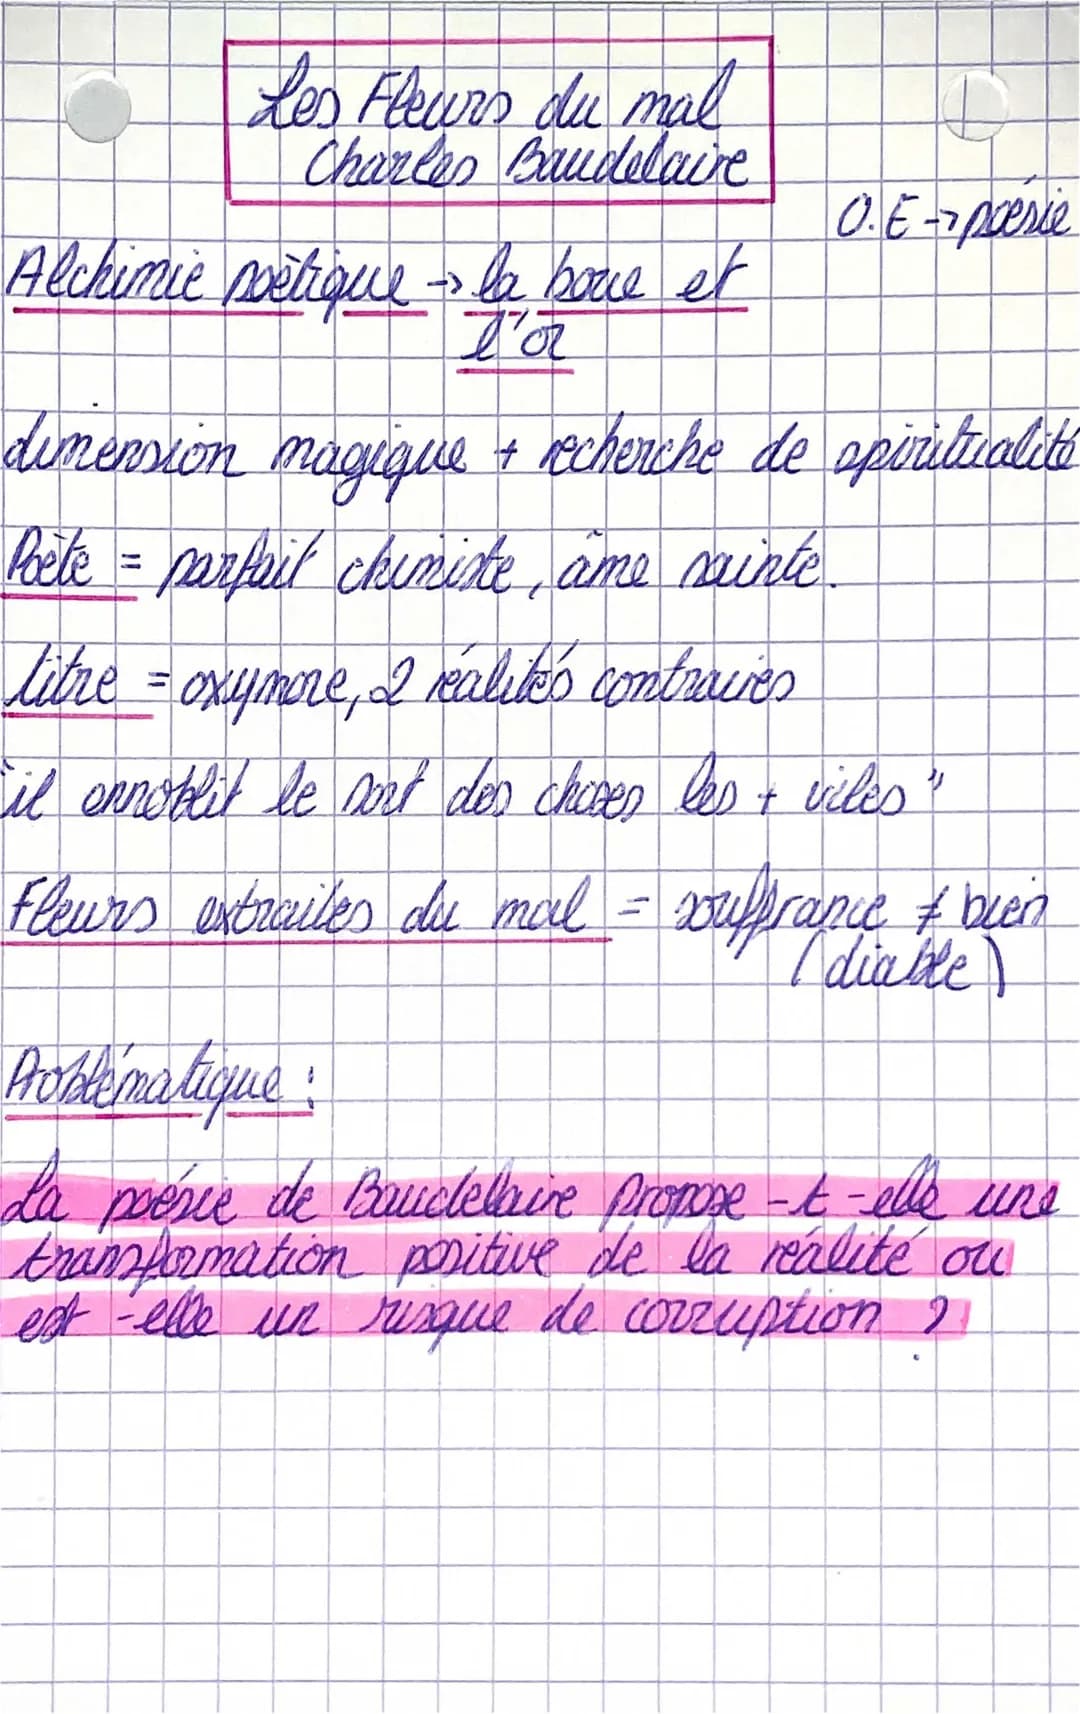 Les Fleurs du mal
Charles Baudelaire
O.E → poésie
Alchimie poètique → la boue et
l'or
dimension magique + recherche de spiritualité
Poète = parfait chimiste, âme sainte.
titre = oxymore, 2 réalités contraires
"il ennoblit le sort des choses les + viles"
Fleurs extraites du mal = souffrance ≠ bien
(diable)
Problématique :
La poésie de Baudelaire propose-t-elle une
transformation positive de la réalité ou
est-elle un risque de corruption ?